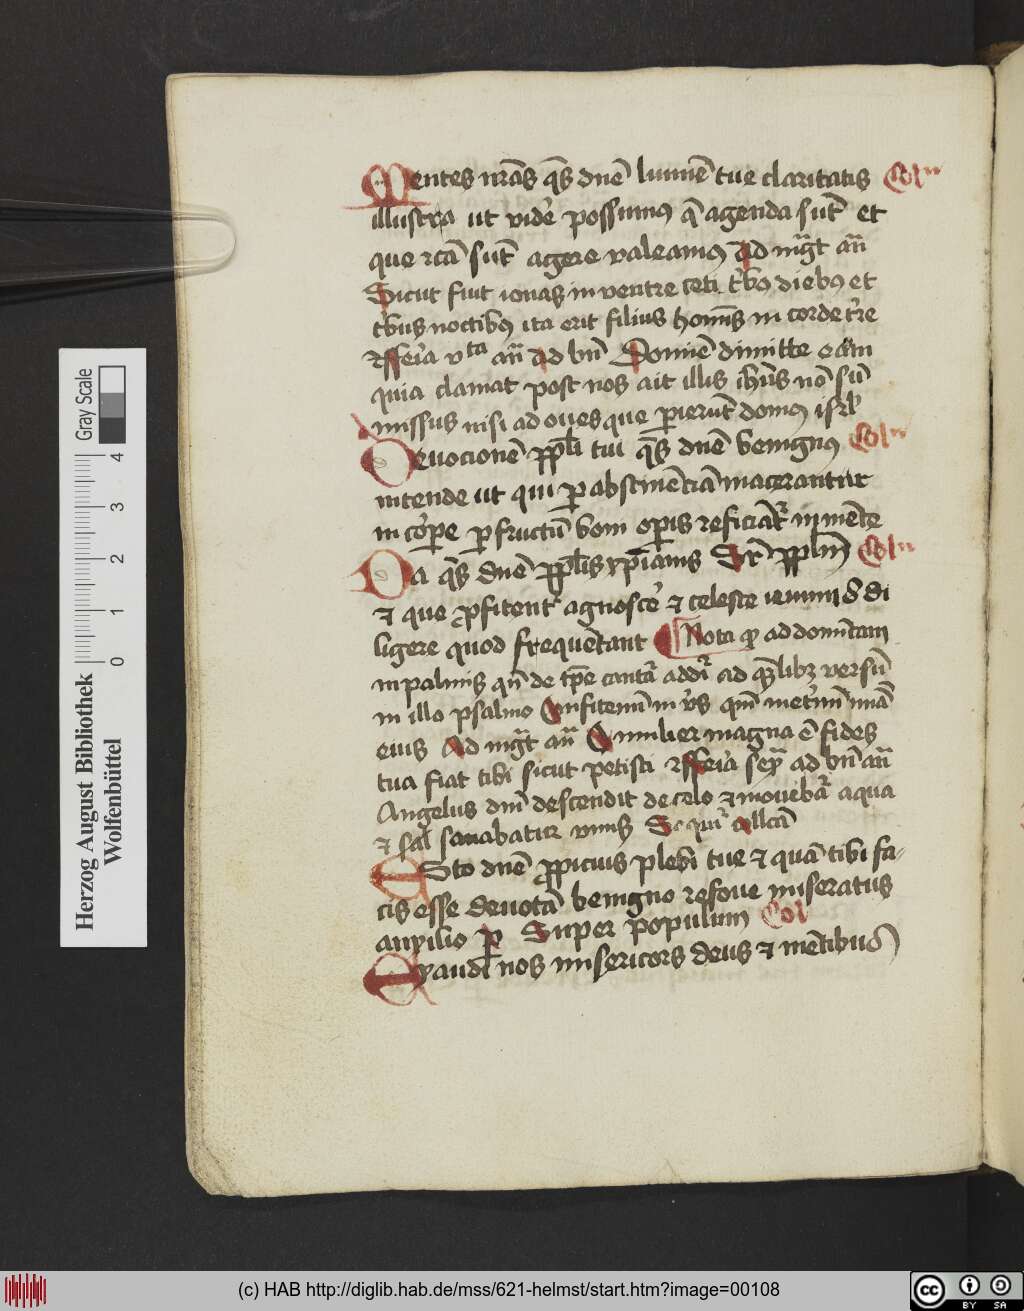 Mentes nr̄as qs̄ dnē lumīe tue claritatis Coln
illustra ut vidē possumus q̄ agenda sūt et
que rcā sūt agere valeamus Ad mḡt an̄
Sicut fuit ionas in ventre ceti tbus diebus et
tbus noctibus ita erit filius hominis in corde tre
an̄ Ad bn̄ Domīe dimitte eam
quia clamat post nos ait illis ihūs nō sū
missus nisi ad oues que perierūt domus isrl
Deuocionē ppli tui qs̄ dnē benignus Coln
intende ut qui per abstinēciā macerantur
in corpe per fructū boni operis reficiāt in mēte
Da qs̄ dnē pplis xpianis Sr̄ pplm̄ Coln
et que profitent agnoscē et celeste di
ligere quod frequētant Nota ad
in psalmis qn̄ de tpe cantat addit ad versū
in illo psalmo Confitemī qm̄
eius Ad mḡt an̄ O mulier magna ē fides
tua fiat tibi sicut petisti ad bn̄ an̄
Angelus dni descendit de celo et mouebat aqua
et sanabatur unus Sequit collcā
Esto dnē propicius plebi tue et quā tibi fa-
cis esse deuotā benigno refoue miseratus
auxilio p Super populum Col
Exaudi nos misericors deus et mētibus
Gray Scale
0 1 2 3 4
Herzog August Bibliothek
Wolfenbüttel
(c) HAB http://diglib.hab.de/mss/621-helmst/start.htm?image=00108
cc BY SA